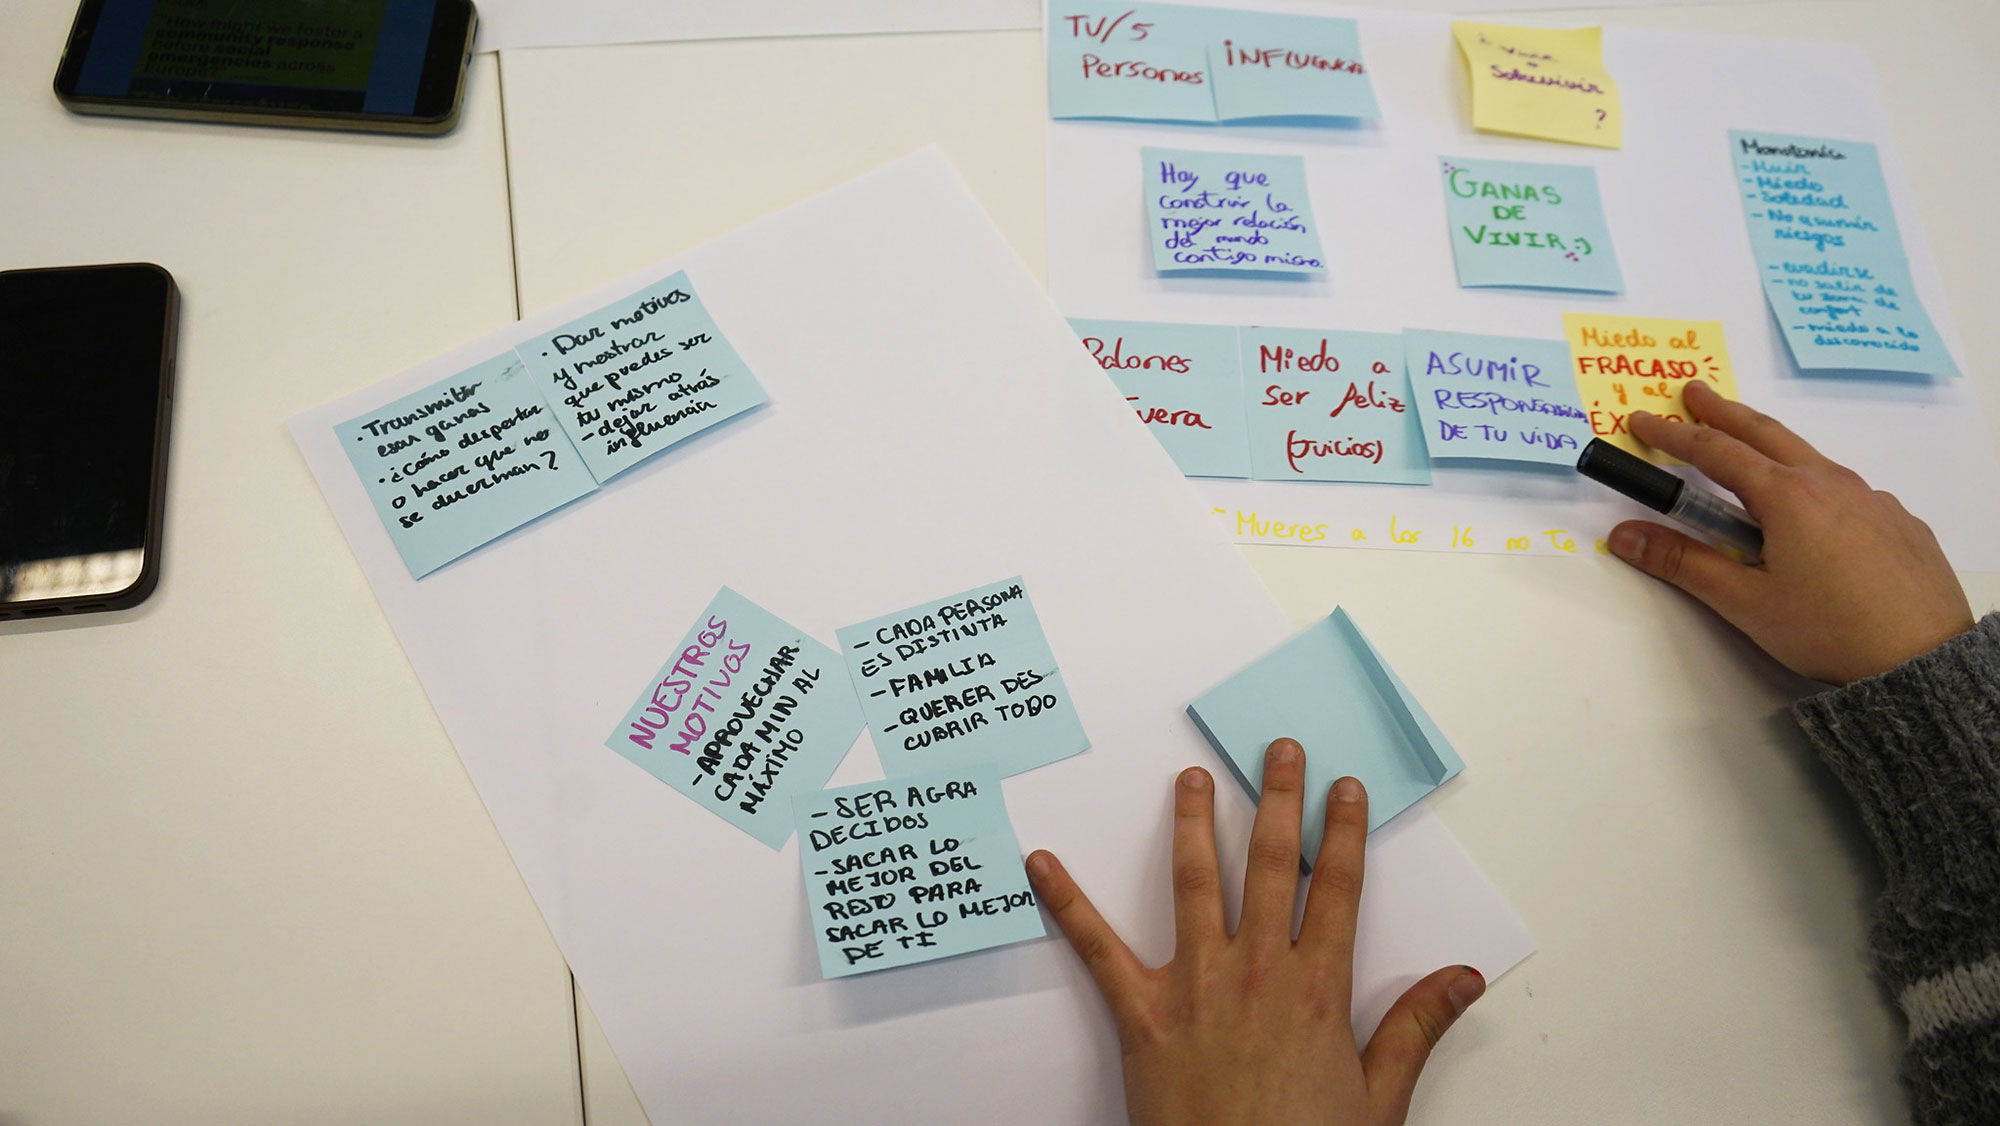 "How might we foster a
community response
before social
emergencies across
Europe?
TU/5
Personas
INFLUENCIA
¿ Vivir
o
Sobrevivir
?
Hay que
construir la
mejor relación
del mundo
contigo mismo.
GANAS
DE
VIVIR :)
Monotonía
- Huir
- Miedo
- Soledad
- No asumir
riesgos
- evadirse
- no salir de
tu zona de
confort
- miedo a lo
desconocido
Miedo a
ser feliz
(Juicios)
ASUMIR
RESPONSABILIDAD
DE TU VIDA
Miedo al
FRACASO
y al
Mueres a los 16 no te
• Transmitir
esar ganas
• ¿Cómo despertar
o hacer que no
se duerman?
• Dar motivos
y mostrar
que puedes ser
tu mismo
- dejar atrás
influencia
NUESTROS
MOTIVOS
- APROVECHAR
CADA MIN AL
MÁXIMO
- CADA PERSONA
ES DISTINTA
- FAMILIA
- QUERER DES
CUBRIR TODO
- SER AGRA
DECIDOS
- SACAR LO
MEJOR DEL
RESTO PARA
SACAR LO MEJOR
DE TI